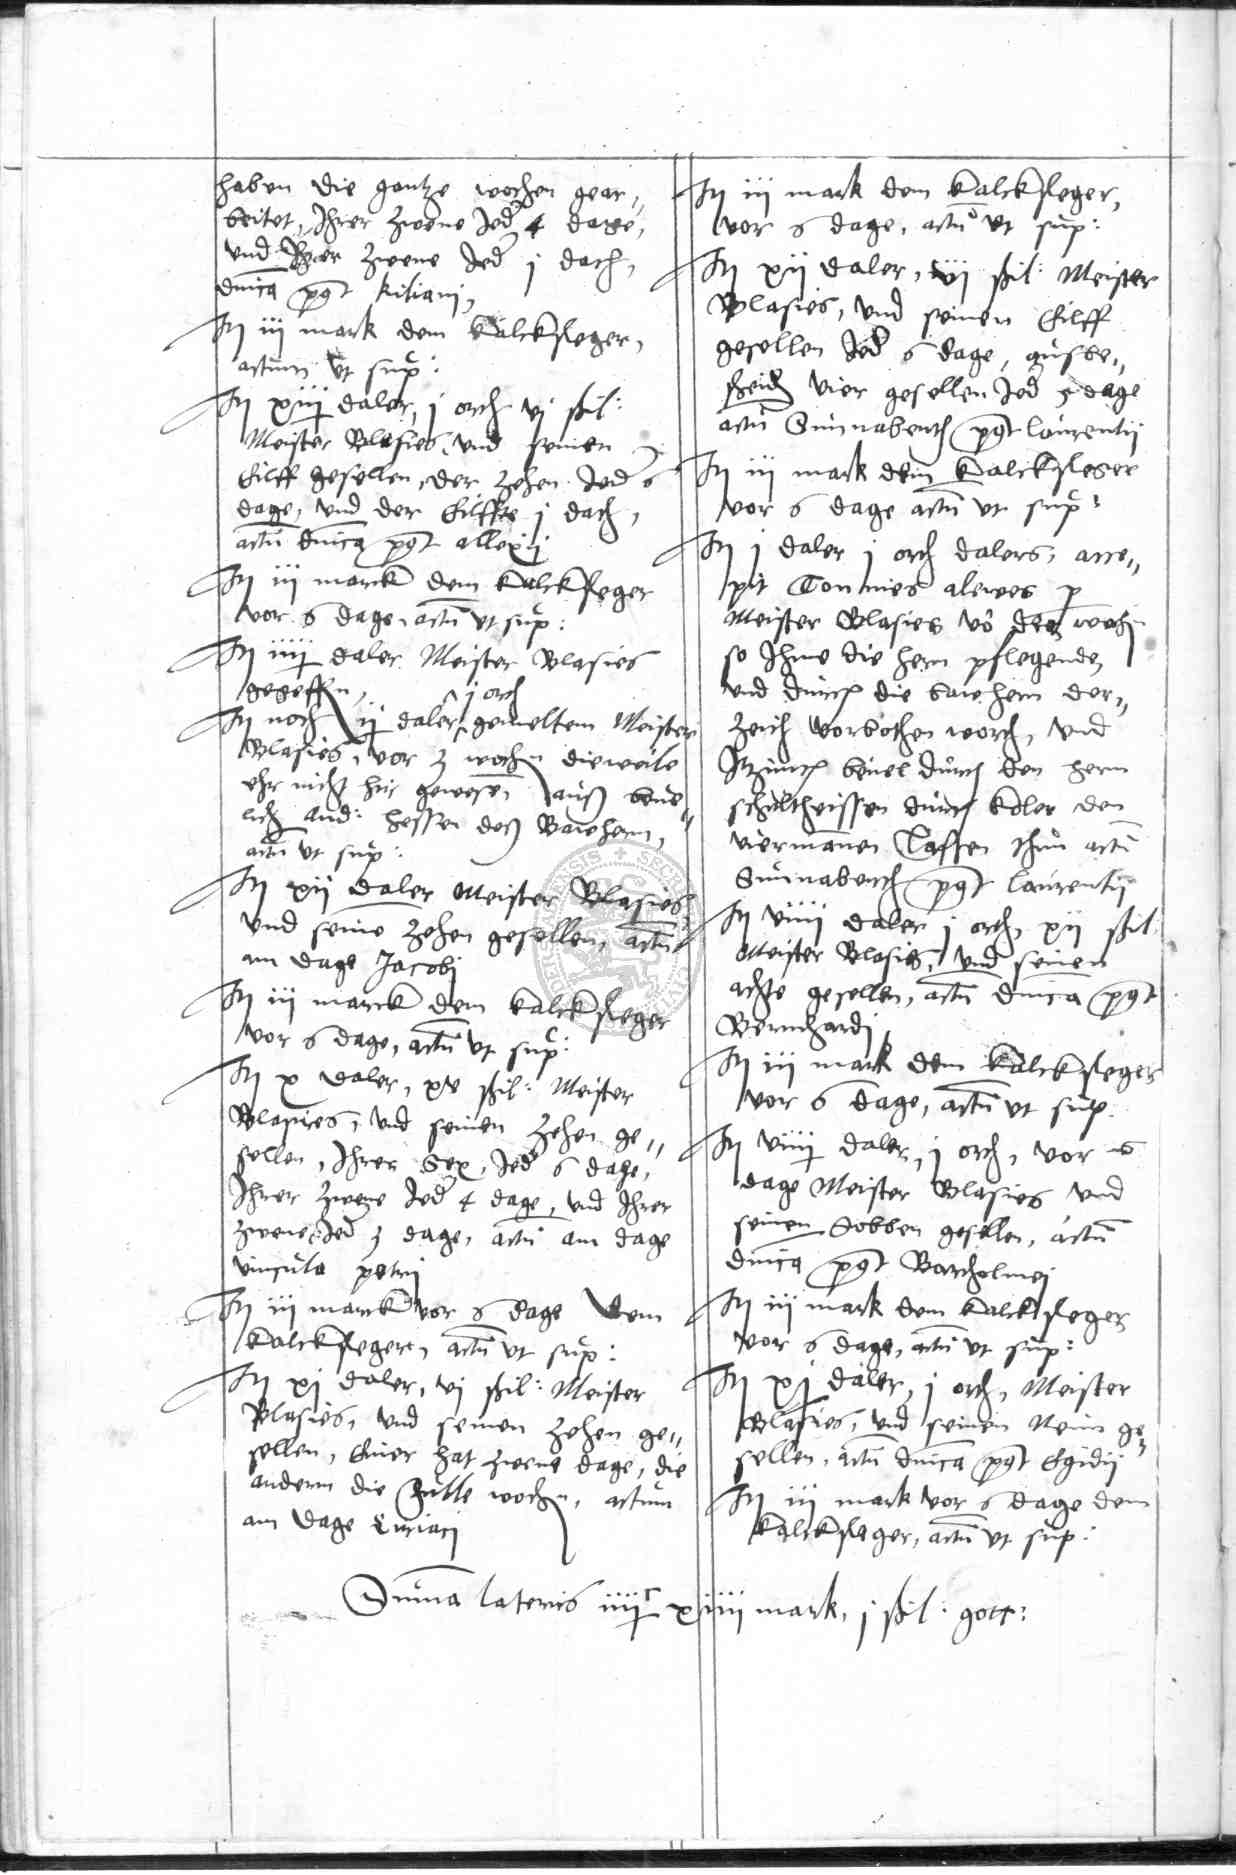 haben die gantze wochen gear„
beitet, Ihrer zwene Jed 4 dage,
vnd Ihrer zwene Jed j dach,
dnica pqt kiliani,
It iii mark dem kalckfleger,
actum vt sup:
It xiiij daler, j orth vj schil:
Meister Blasies, vnd seinen
Eilff gesellen, der zehen Jed 6
dage, vnd der Eilffte j dach,
actu dnica pqt allexij
It iii marck dem kalckfleger
vor 6 dage, actu vt sup:
It iiij daler Meister Blasies
gegeffn,
It noch ij daler j orth gemeltem Meister
Blasies, vor 3 wochn dieweile
ehr nicht hir gewesen auß beue„
lich And: hessen deß Bawhern,
actu vt sup:
It xij daler Meister Blasies,
vnd seine zehen gesellen, actu
am dage Jacobj
It iii marck dem kalckfleger
vor 6 dage, actu vt sup:
It x daler, xv schil: Meister
Blasies, vnd seinen zehen ge„
sellen, Ihrer Sex, Jed 6 dage,
Ihrer zwene Jed 4 dage, vnd Ihrer
zwene Jed 3 dage, actu am dage
vincula petrij
It iii marck vor 6 dage dem
kalckfleger, actu vt sup:
It xj daler, vj schil: Meister
Blasies, vnd seinen zehen ge„
sellen, Einer hat zwene dage, die
andern die fulle wochn, actum
am dage Ciriacj
It iii mark dem kalckfleger,
vor 6 dage, actu vt sup:
It xij daler, vj schil: Meister
Blasies, vnd seinen Eilff
gesellen Jed 6 dage, ausbe„
scheidn vier gesellen Jed 5 dage
actu Sunnabenth pqt laurentij
It iii mark dem kalckfleger
vor 6 dage actu vt sup:
It j daler j orth dalers, acce„
pit Tonnies alewes p
Meister Blasies vo den wochn
so Ihme die hern pflegenden
vnd durch die bawhern der„
zeith vorbothen worth, vnd
beuel durch den hern
schultheissen durch koler den
viermannen lassen thun actu
Sunnabenth pqt laurentij
It viiij daler j orth, xij schil:
Meister Blasies, vnd seinen
achte gesellen, actu dnica pqt
Bernhardj
It iii mark dem kalckfleger
vor 6 dage, actu vt sup:
It viiij daler, j orth, vor 6
dage Meister Blasies vnd
seinen Sobben gesellen, actu
dnica pqt Bartholmej
It iii mark dem kalckfleger
vor 6 dage, actu vt sup:
It xj daler, j orth, Meister
Blasies, vnd seinen Nein ge„
sellen, actu dnica pqt Egidij
It iii mark vor 6 dage dem
kalckfleger, actu vt sup:
Suma lateris iiijc xiiii mark, j schil: gott: